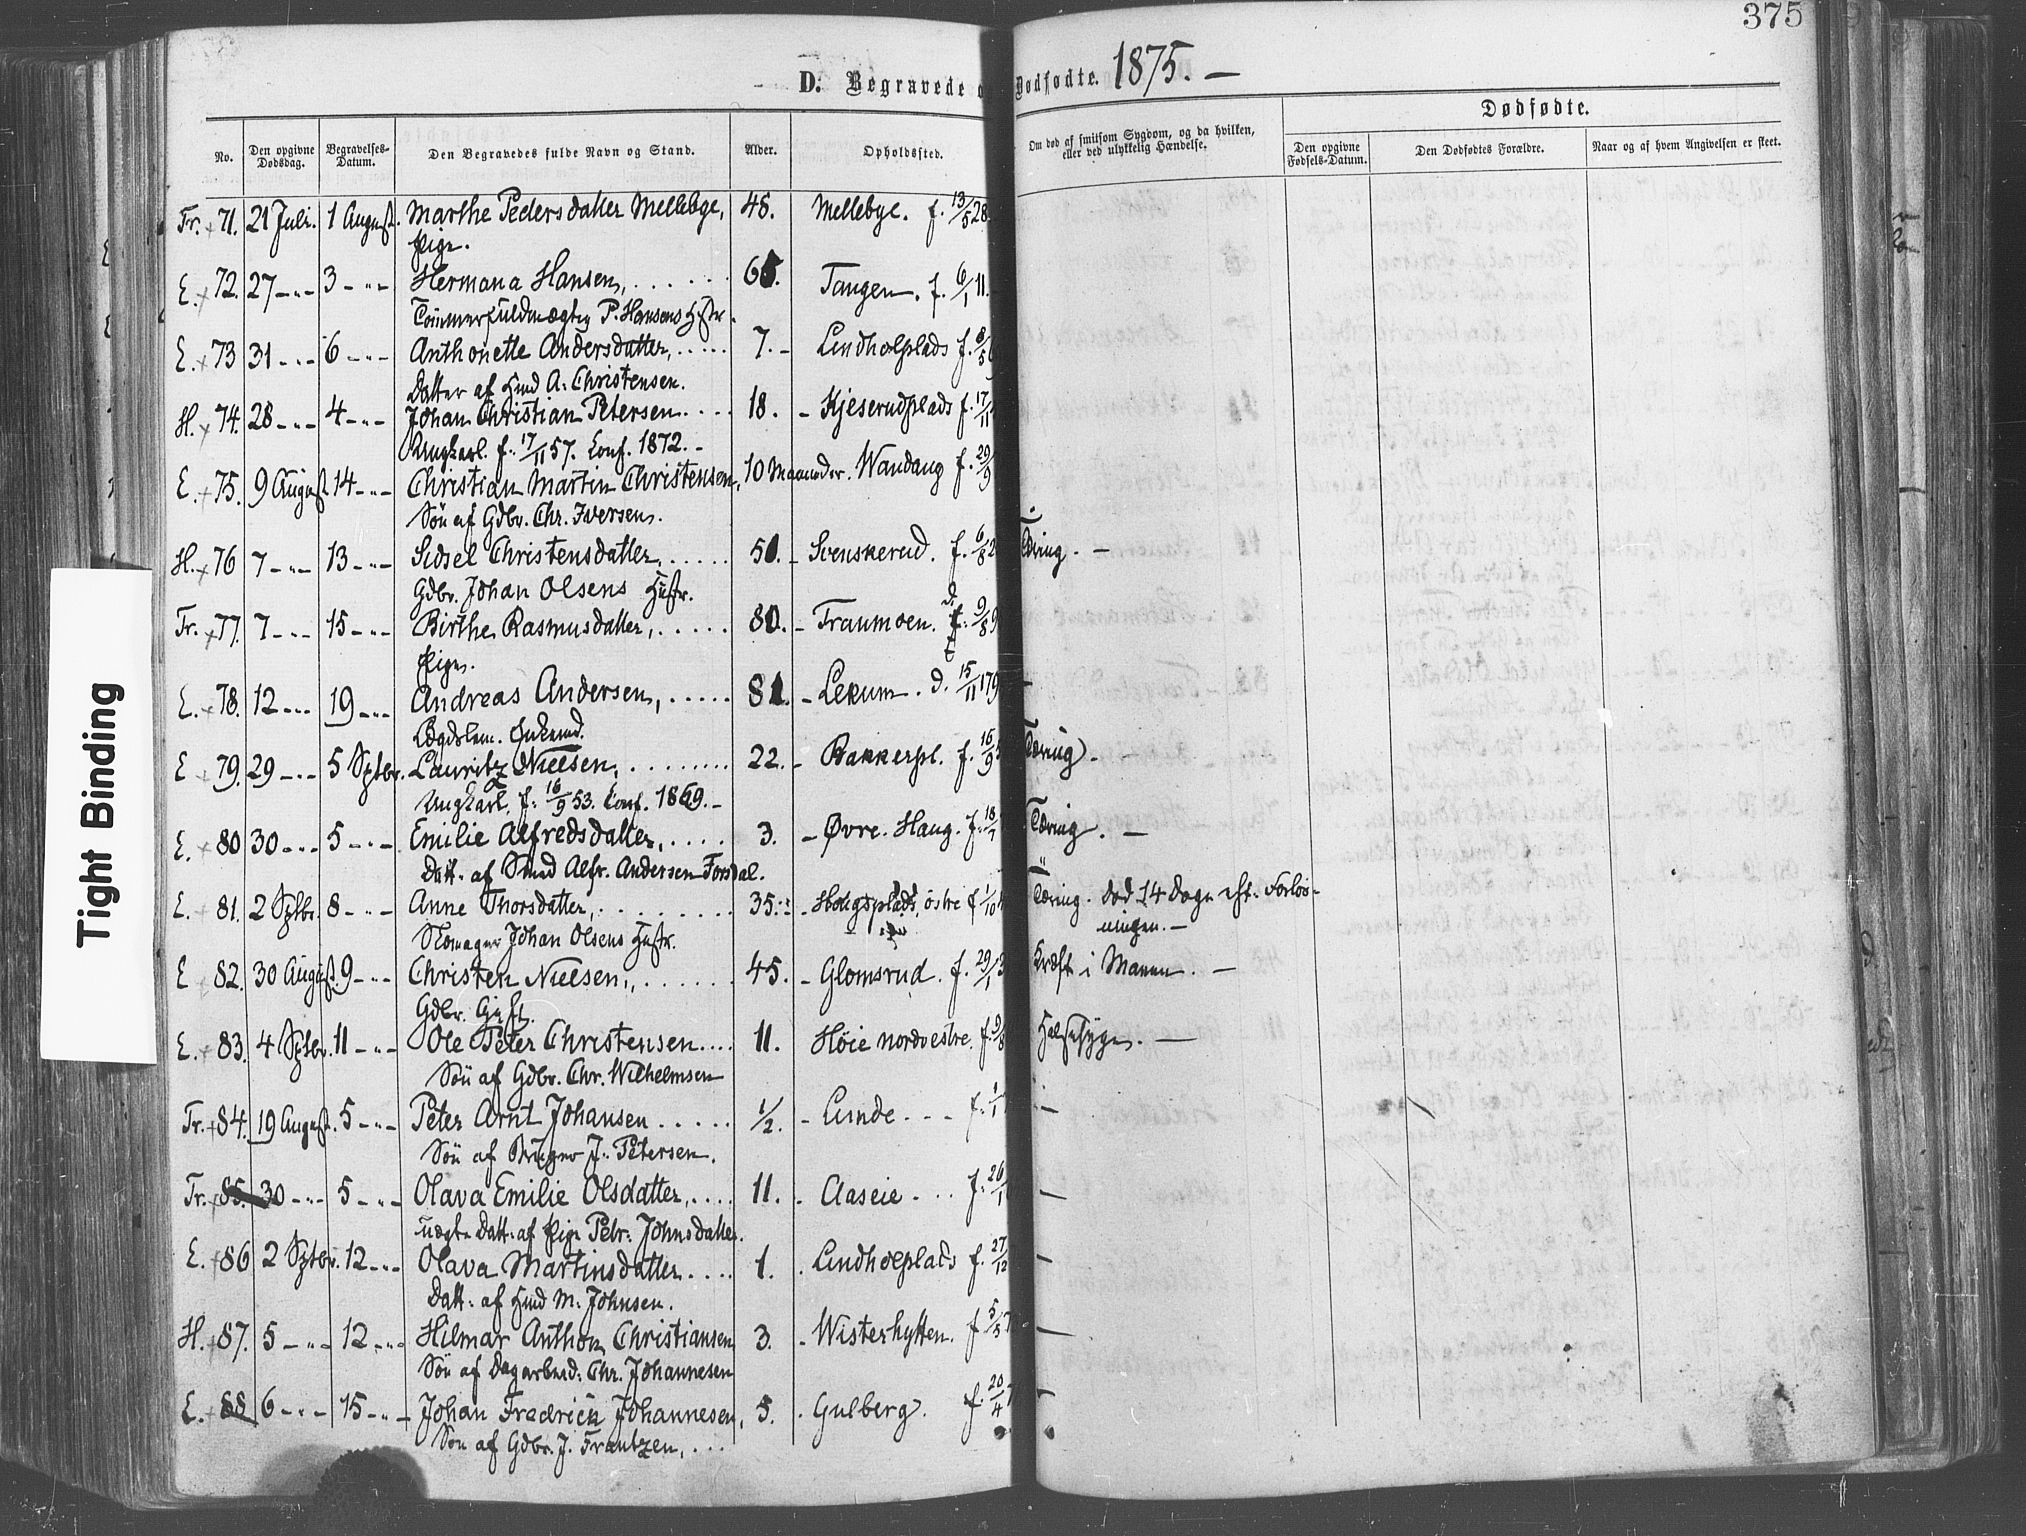 375
D. Begravede o Dødfødte. 1875. —
Dødfødte.
No. Den opgivne Dødsdag. Begravelses-Datum. Den Begravedes fulde Navn og Stand. Alder. Opholdssted. Om død af smitsom Sygdom, og da hvilken, eller ved ulykkelig Hændelse. Den opgivne Fødsels-Datum. Den Dødfødtes Forældre. Naar og af hvem Angivelsen er skeet.
Fr. 71. 21 Juli. 1 August. Marthe Pedersdatter Mellebye, 48. Mellebye. f. 13/5 28
Pige.
E. 72. 27 — " — 3 — " — Hermana Hansen, 65. Tangen. f. 6/1 11.
Tømmerfuldmægtig P. Hansens Hstr.
E. 73 31 — " — 6 — " — Anthonette Andersdatter, 7. — Lindholplads f. 8/5
Datter af Hmd A. Christensen.
H. 74. 28 — " — 4 — " — Johan Christian Petersen 18. — Kjeserudplads f. 17/11
Ungkarl. f. 17/11 57. Conf. 1872. —
E. 75. 9 August 14 — " — Christian Martin Christensen, 10 Maaneder. Wandaug f. 29/9
Søn af Gdbr. Chr. Iversen.
H. 76 7 — " — 13 — " — Sidsel Christensdatter, 50. — Svenskerud. f. 6/8 2 Tæring. —
Gdbr. Johan Olsens Hustr.
Fr. 77. 7 — " — 15 — " — Birthe Rasmusdatter, 80. — Traumoen. 9/8 9
Pige.
E. 78. 12 — " — 19 — " — Andreas Andersen, 81. — Lekum. d. 15/11 179 —
Lægdslem. Enkemd.
E 79. 29 — " — 5 Sptbr. Lauritz Nielsen, 22. — Bakkerpl. f. 16/9 5 Tæring. —
Ungkarl. f. 16/9 53. Conf. 1869. —
E. 80 30 — " — 5 — " — Emilie Alfredsdatter, 3. — Øvre Haug. f. 18/7 Tæring. —
Datt. af Smed Alfr. Andersen Forsdal.
E. 81. 2 Sptbr. 8 — " — Anne Thorsdatter, 35. — Haugsplads, østre f 1/10 Tæring. død 14 Dage eft. Forløs-
ningen. —
Skomager Johan Olsens Hustr.
E 82. 30 August. 9 — " — Christen Nielsen, 45. — Glomsrud. f. 29/1 3 Kræft i Maven. —
Gdbr. Gift.
E. 83. 4 Sptbr. 11 — " — Ole Peter Christensen 11. Høie nordvestre. f. 9/8 Halssyge. —
Søn af Gdbr. Chr. Wilhelmsen
Fr. 84. 19 August. 5 — " — Peter Arnt Johansen 1/2. — Lunde f. 1/1 —
Søn af Bruger J. Petersen.
Fr. 85. 30 — " — 5 — " — Olava Emilie Olsdatter, 11. Aaseie f. 26/1 —
uægte Datt. af Pige Petr. Johnsdatter.
E. 86 2 Sptbr. 12 — " — Olava Martinsdatter 1. Lindholplads f. 27/12 —
Datt. af Hmd M. Johnsen.
H. 87. 5 — " — 12 — " — Hilmar Anthon Christiansen 3. — Wisterhytten. f 5/5 7 —
Søn af Dagarbeid. Chr. Johannesen
E. 88. 6 — " — 15 — " — Johan Fredrick Johannesen, 5. Gulberg. f. 20/4 7 —
Søn af Gdbr. J. Frantzen,
Tight Binding